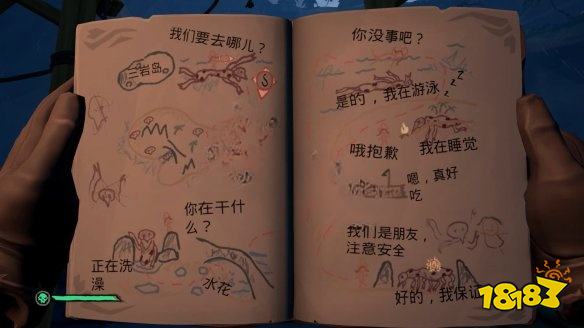 我们要去哪儿？
三岩岛
你在干什
么？
正在洗
澡
水花
你没事吧？
是的，我在游泳
zzz
哦抱歉
我在睡觉
嗯，真好
吃
我们是朋友，
注意安全
好的，我保证
18183